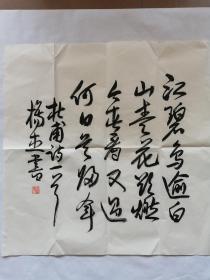 江碧鸟逾白
山青花欲燃
今春看又过
何日是归年
杜甫诗一首
杨杰书